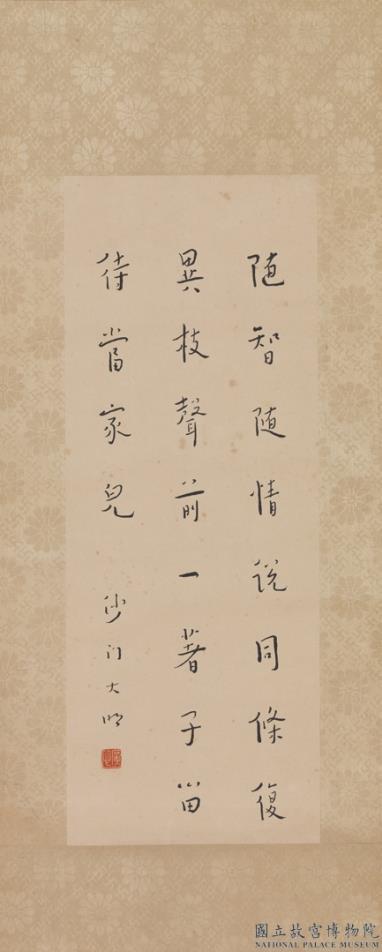 隨智隨情說同條復
異枝聲前一著子留
待當家兒 沙門大明
國立故宮博物院
NATIONAL PALACE MUSEUM